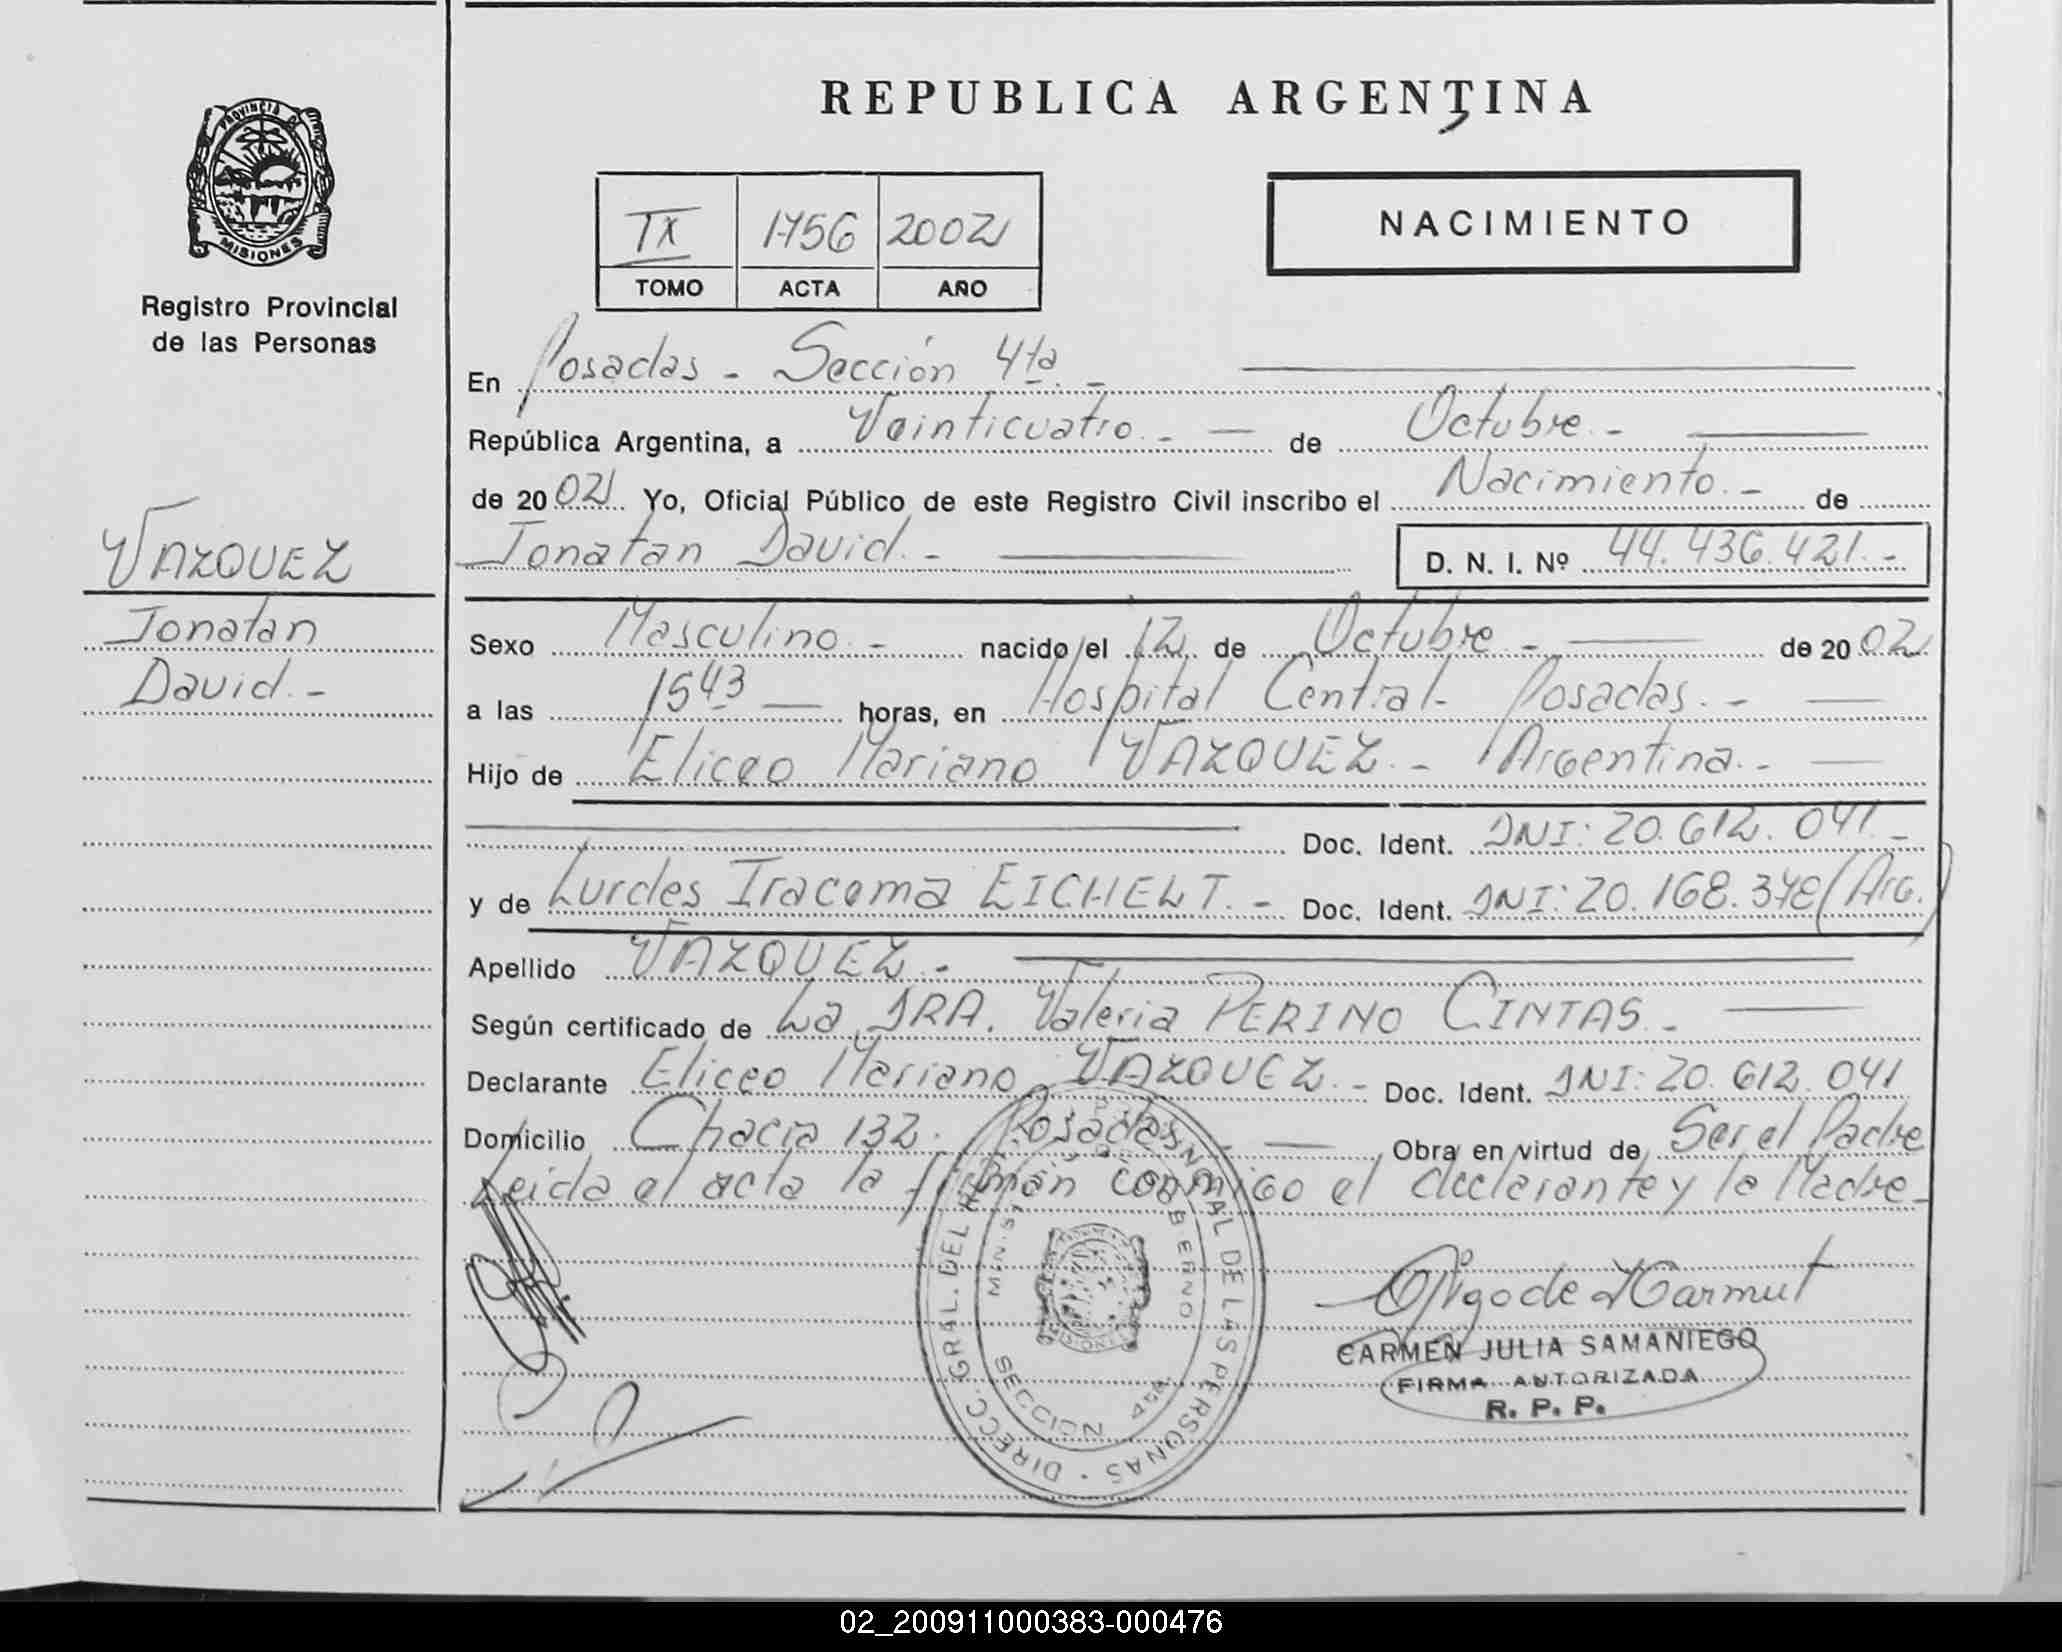 REPUBLICA ARGENTINA
PROVINCIA DE
MISIONES
Registro Provincial
de las Personas
TX 1756 2002
TOMO ACTA AÑO
NACIMIENTO
En Posadas - Sección 4ta. -
República Argentina, a Veinticuatro. - de Octubre. -
de 2002. Yo, Oficial Público de este Registro Civil inscribo el Nacimiento. - de
Jonatan David. - D. N. I. Nº 44.436.421. -
VAZQUEZ
Jonatan
David. -
Sexo Masculino. - nacido el 12 de Octubre - de 2002
a las 1543 horas, en Hospital Central - Posadas. -
Hijo de Eliceo Mariano VAZQUEZ. - Argentina. -
Doc. Ident. DNI: 20.612.041. -
y de Lurdes Iracema EICHELT. - Doc. Ident. DNI: 20.168.348 (Arg.)
Apellido VAZQUEZ. -
Según certificado de La DRA. Valeria PERINO CINTAS. -
Declarante Eliceo Mariano VAZQUEZ. - Doc. Ident. DNI: 20.612.041
Domicilio Chacra 132. Posadas. - Obra en virtud de Ser el Padre
Leida el acta la firman conmigo el declarante y la Madre -
DIRECC. GRAL. DEL REG. PROVINCIAL DE LAS PERSONAS
MINIST. DE GOBIERNO
MISIONES
SECCION 4ta.
CARMEN JULIA SAMANIEGO
FIRMA AUTORIZADA
R. P. P.
02_200911000383-000476